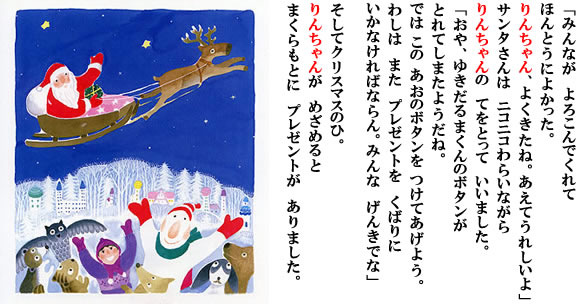 「みんなが よろこんでくれて
ほんとうによかった。
りんちゃん、よくきたね。あえてうれしいよ」
サンタさんは ニコニコわらいながら
りんちゃんの てをとって いいました。
「おや、ゆきだるまくんのボタンが
とれてしまたようだね。
では この あおのボタンを つけてあげよう。
わしは また プレゼントを くばりに
いかなければならん。みんな げんきでな」
そしてクリスマスのひ。
りんちゃんが めざめると
まくらもとに プレゼントが ありました。